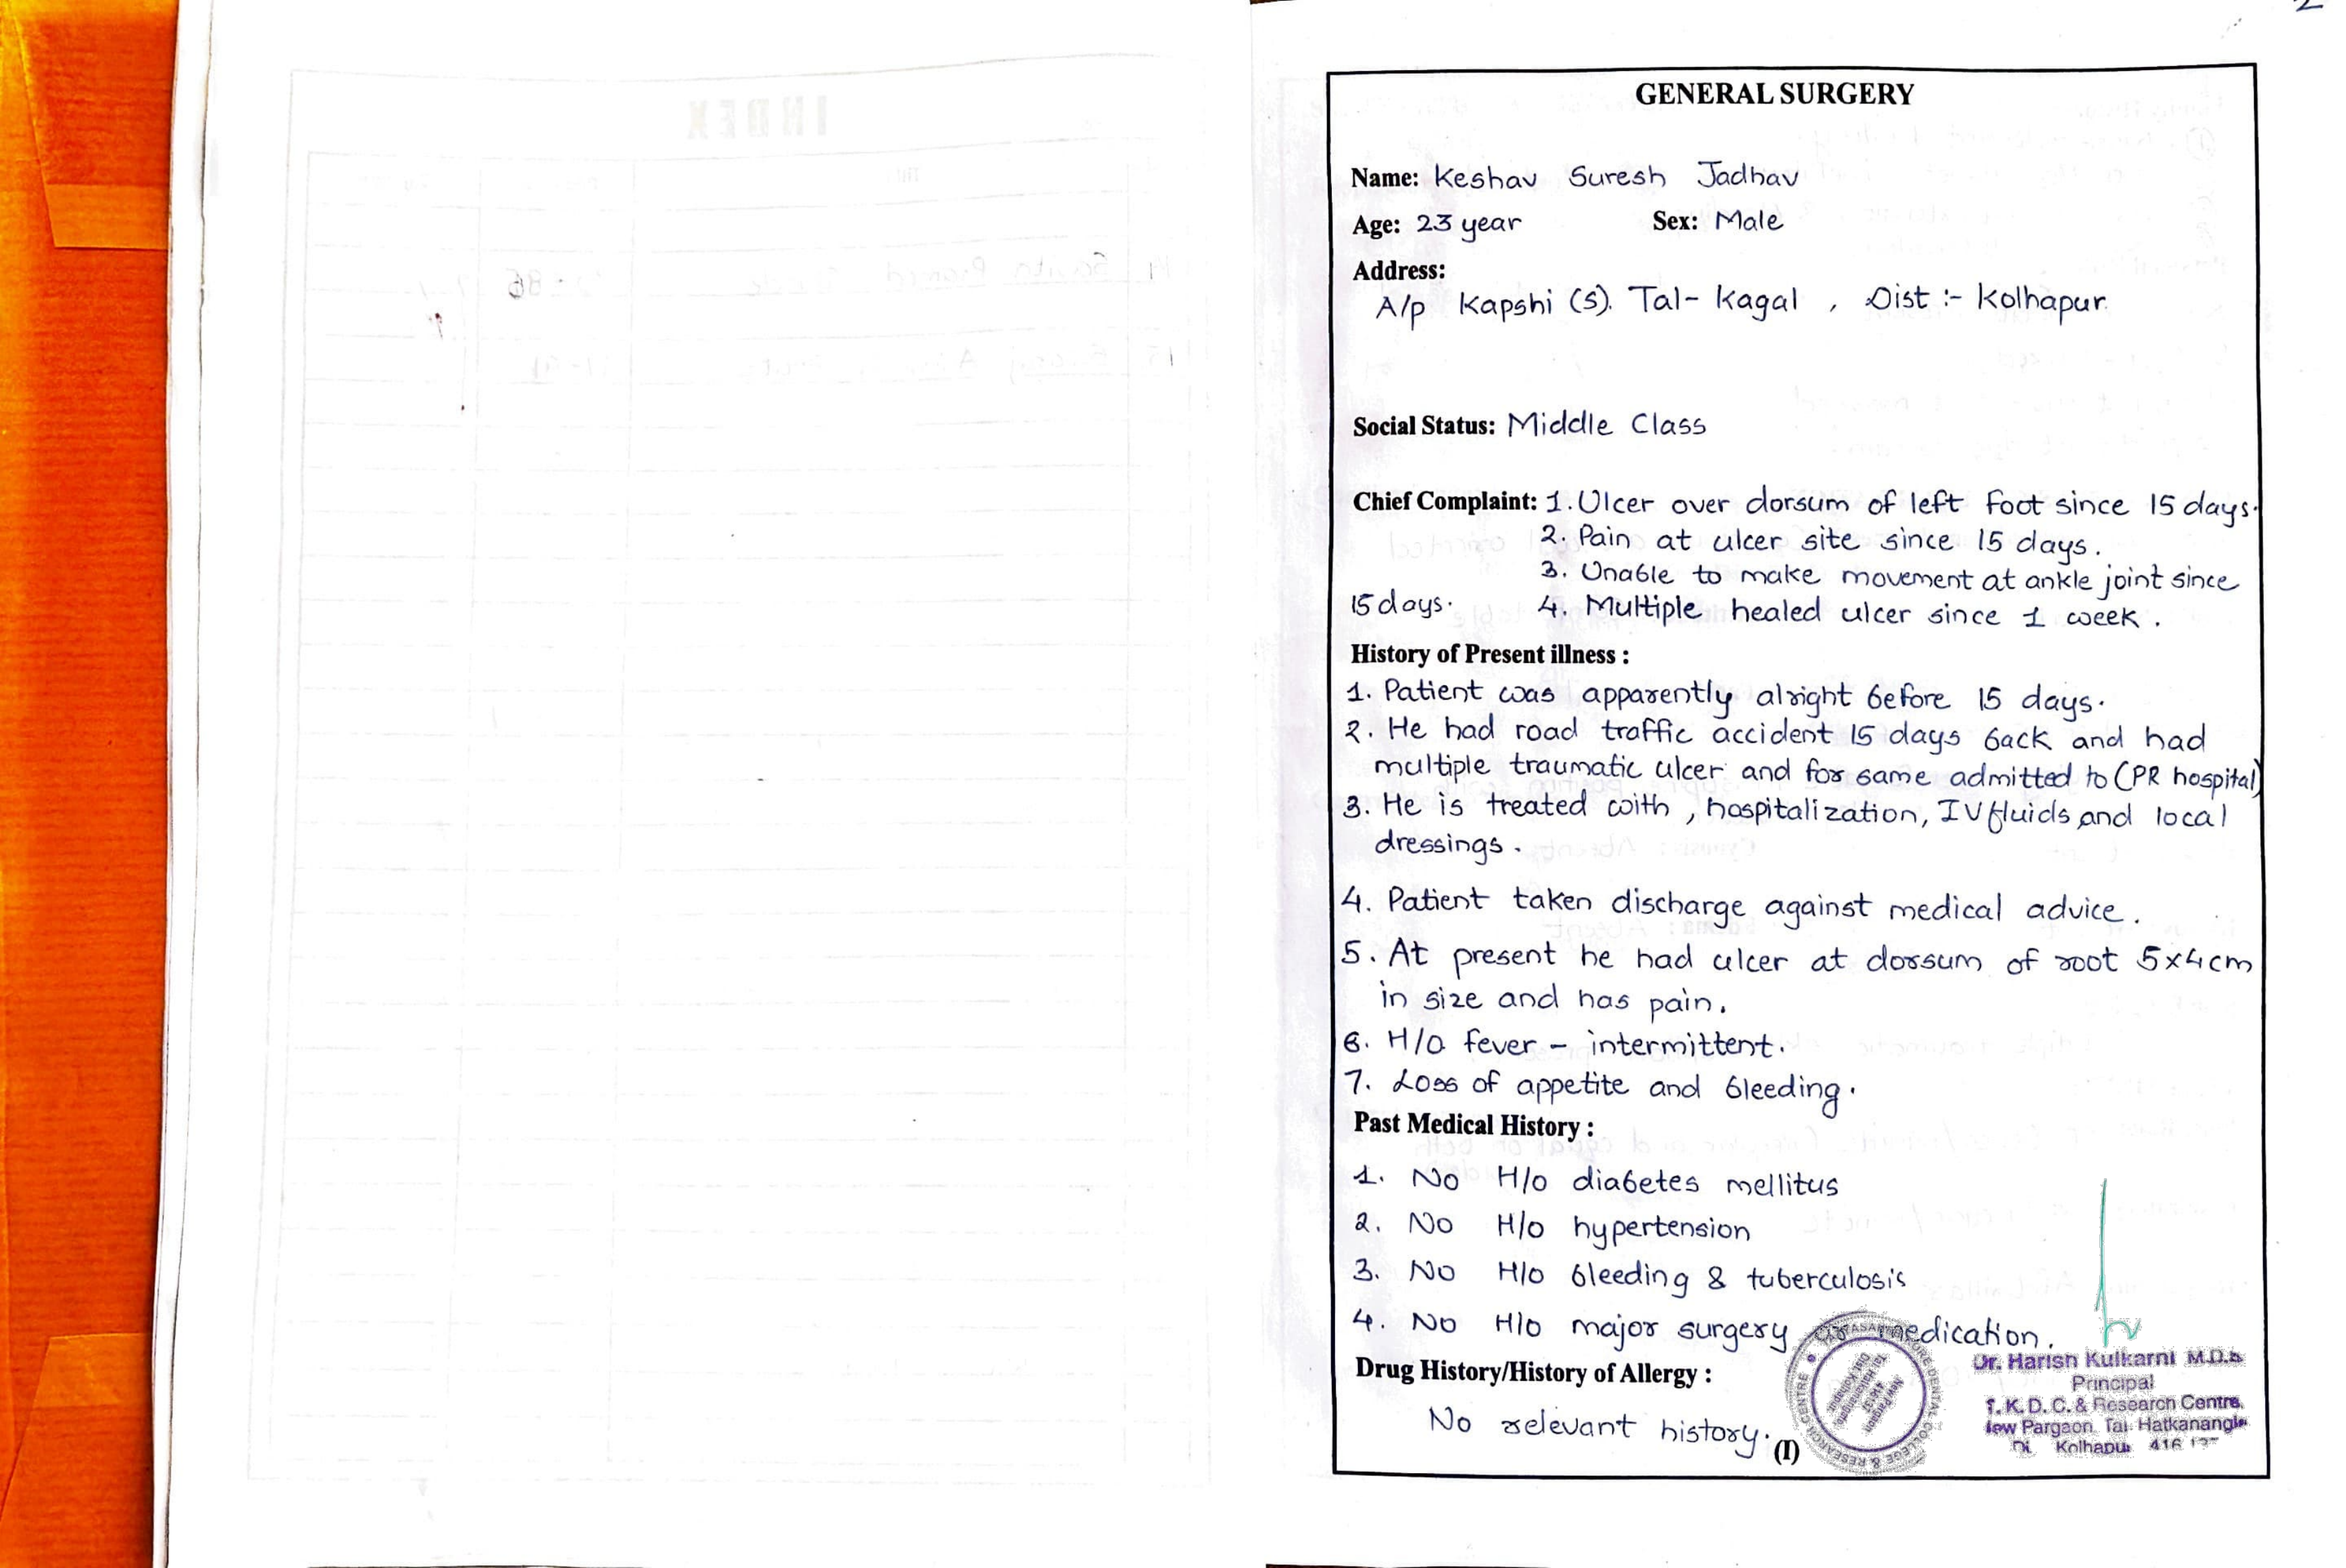 GENERAL SURGERY
Name: Keshav Suresh Jadhav
Age: 23 year Sex: Male
Address:
A/p Kapshi (S). Tal- Kagal , Dist :- Kolhapur.
Social Status: Middle Class
Chief Complaint: 1. Ulcer over dorsum of left foot since 15 days.
2. Pain at ulcer site since 15 days.
3. Unable to make movement at ankle joint since
15 days. 4. Multiple healed ulcer since 1 week.
History of Present illness :
1. Patient was apparently alright before 15 days.
2. He had road traffic accident 15 days back and had
multiple traumatic ulcer and for same admitted to (PR hospital)
3. He is treated with , hospitalization, IV fluids and local
dressings.
4. Patient taken discharge against medical advice.
5. At present he had ulcer at dorsum of root 5x4cm
in size and has pain.
6. H/O fever - intermittent.
7. Loss of appetite and bleeding.
Past Medical History :
1. No H/o diabetes mellitus
2. No H/o hypertension
3. No H/o bleeding & tuberculosis
4. No H/o major surgery or medication.
Drug History/History of Allergy :
No relevant history.
(I)
Dr. Harish Kulkarni M.D.S
Principal
T. K. D. C. & Research Centre,
New Pargaon, Tal. Hatkanangle
Kolhapur
INDEX